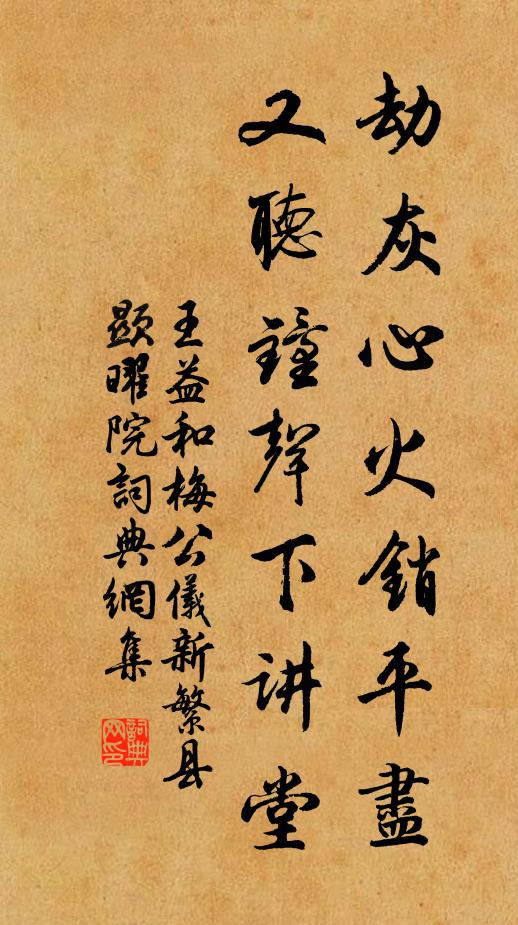 劫灰心火销平盡
又聽鐘聲下讲堂
王益和梅公儀新繁县
顯曜院詞典網集
詞典網印